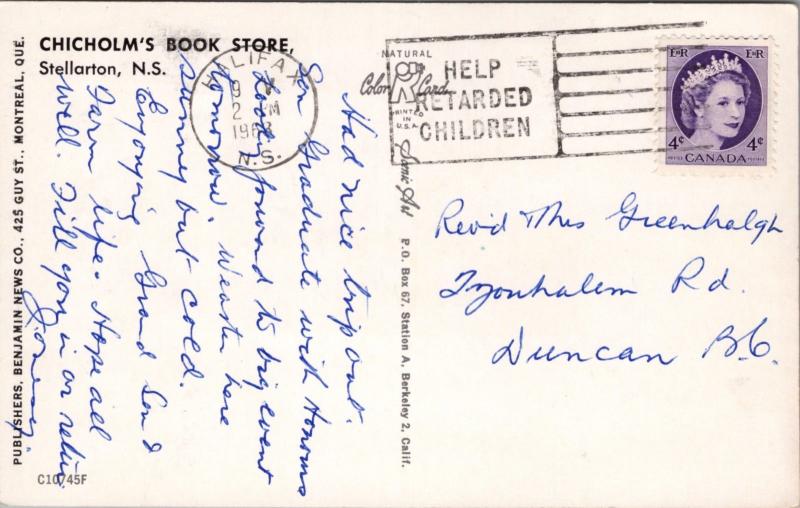 CHICHOLM'S BOOK STORE,
Stellarton, N.S.
HALIFAX
9
2 PM
N.S.
HELP
RETARDED
CHILDREN
NATURAL
Color Card
PRINTED
IN
U.S.A.
E II R E II R
4¢ 4¢
CANADA
Had nice trip out.
Son Graduate with Honours
Looking forward to big event
tomorrow. Weather here
sunny but cold.
Enjoying Grand Son &
Farm life. Hope all
well. Tell you in on return
Revd Thos Greenhalgh
Tzouhalem Rd.
Duncan B.C.
Scenic Art P.O. Box 67, Station A, Berkeley 2, Calif.
PUBLISHERS, BENJAMIN NEWS CO., 425 GUY ST., MONTREAL, QUE.
C10745F